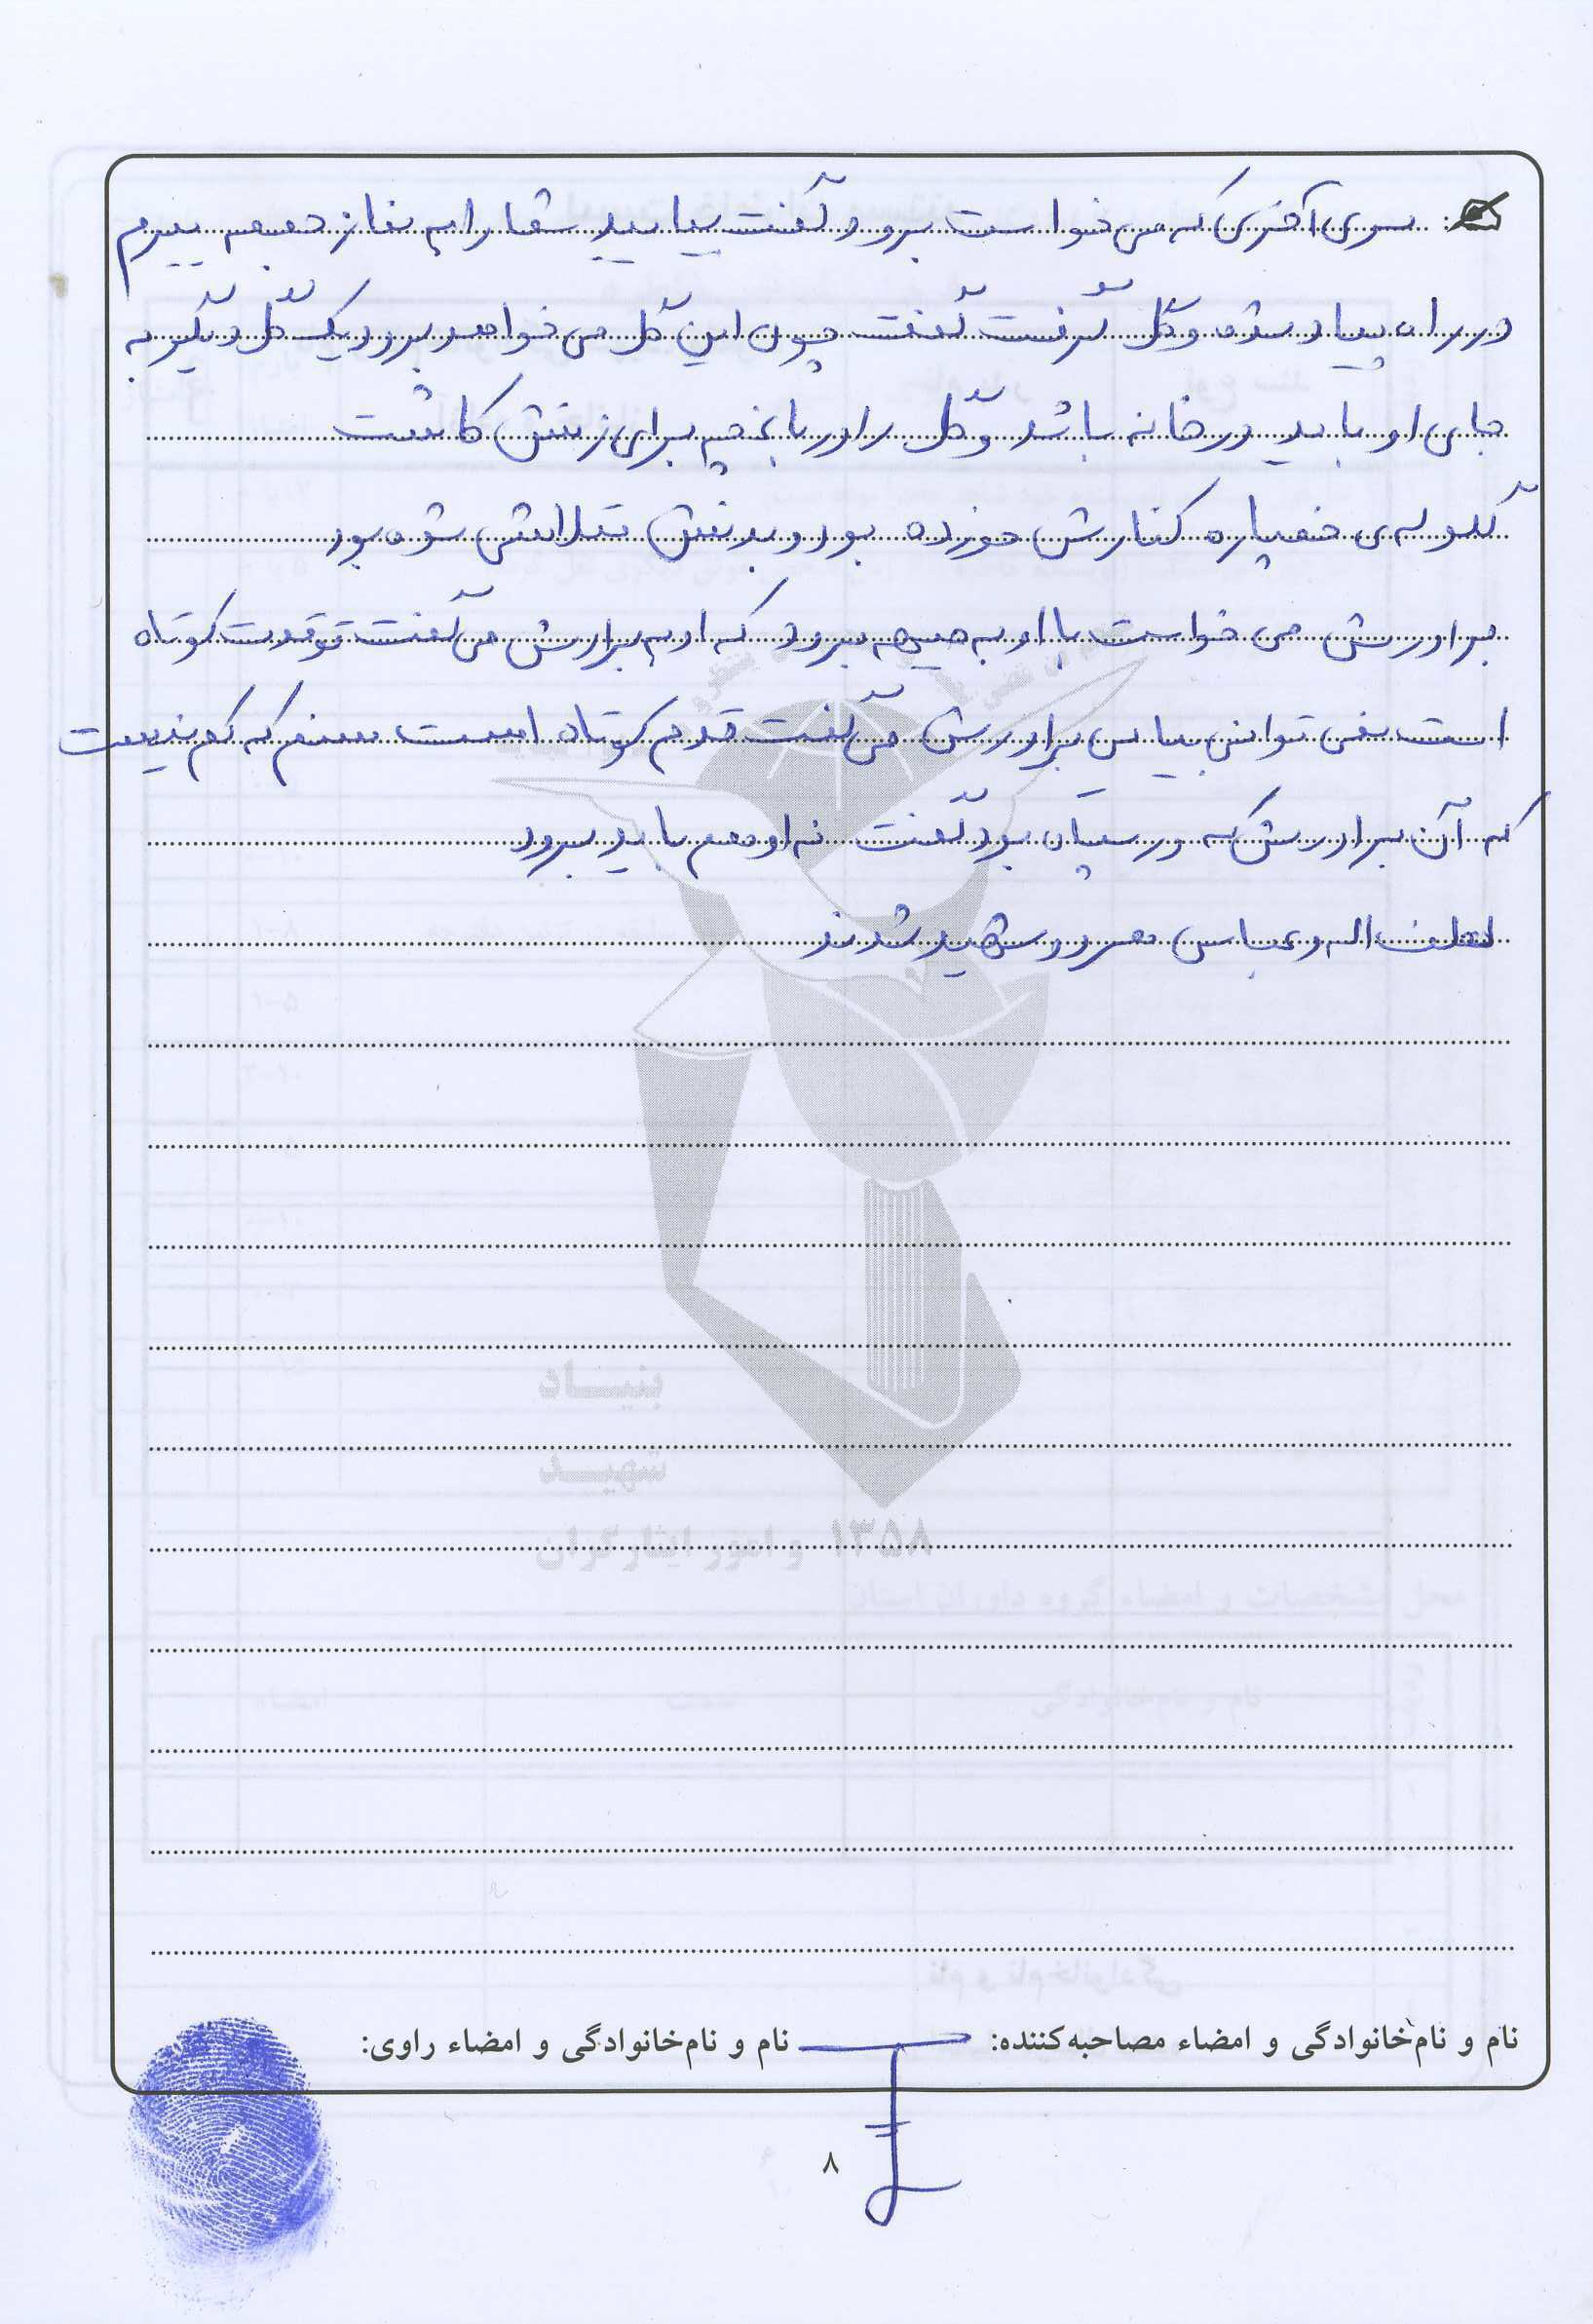 سری آخری که می خواست برود گفت بیایید شما را به نماز جمعه ببرم
در راه پیاده شد و گل گرفت گفت چون این گل می خواهد برود یک گل دیگر به
جای او باید در خانه باشد و گل را در باغچه برای زنش کاشت
گلوله ی خمپاره کنارش خورده بود و بدنش متلاشی شده بود
برادرش می خواست با او به جبهه برود که او به برادرش می گفت تو قدت کوتاه
است نمی توانی بیایی برادرش می گفت قدم کوتاه است سنم که کم نیست
که آن برادرش که در سپاه بود گفت نه او هم باید برود
لطف اله و عباس هر دو شهید شدند
بنیاد
شهید
۱۳۵۸ و امور ایثارگران
نام و نام‌خانوادگی و امضاء مصاحبه‌کننده:
نام و نام‌خانوادگی و امضاء راوی:
۸